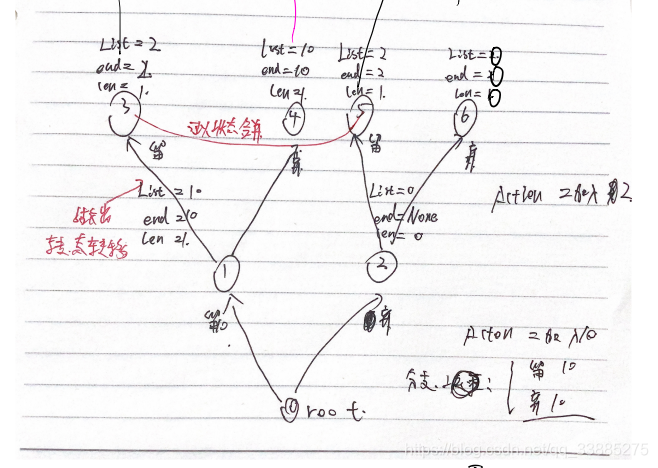 List = 2
end = 2
len = 1.
③
List = 10
end = 10
len = 1.
④
List = 2
end = 2
len = 1.
⑤
List = 0
end = 0
len = 0
⑥
可以状态合并
留
弃
留
弃
List = 10
end = 10
len = 1.
List = 0
end = None
len = 0
Action = 加入 2
①
②
留10
弃
Action = 加入 10
分支
留 10
弃 10
⓪ root.
https://blog.csdn.net/qq_33885275